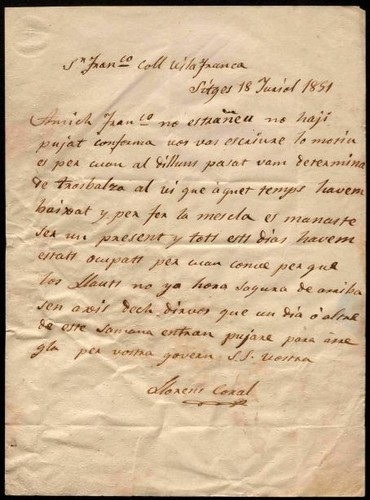 Sr Franco Coll Vilafranca
Sitges 18 Juriol 1851
Amich Franco no estrañeu no haji
pujat conforma vos vas escriure lo motiu
es per cuan al dilluns pasat vam determina
de trasbalza al vi que aquet temps havem
baixat y per fer la mescla es manaste
ser un present y tots esti dias havem
estats ocupats per cuan conve per que
los Llauts no ya hora segura de arriba
sen axis dech dirvos que un dia ó altre
de este Semana entran pujare para arre
gla per vostra govern S.S. vostra
Llorens Coral